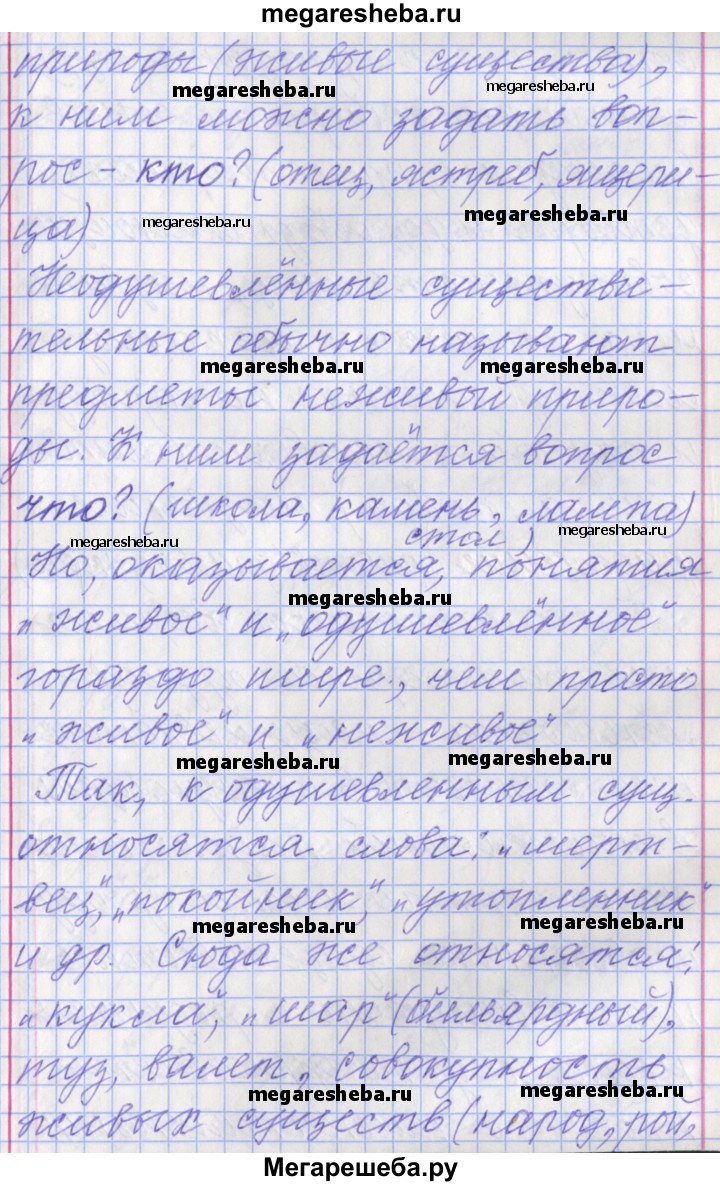 megaresheba.ru
природы (живые существа),
megaresheba.ru megaresheba.ru
к ним можно задать воп-
рос - кто? (отец, ястреб, ящери-
megaresheba.ru megaresheba.ru
ца)
Неодушевлённые существи-
тельные обычно называют
megaresheba.ru megaresheba.ru
предметы неживый приро-
ды. К ним задаётся вопрос
что? (школа, камень, лампа)
стол,
megaresheba.ru megaresheba.ru
Но, оказывается, понятия
megaresheba.ru
„живое“ и „одушевлённое“
гораздо шире, чем просто
„живое“ и „неживое“
megaresheba.ru megaresheba.ru
Так, к одушевленным сущ.
относятся слова: „мерт-
вец“, „покойник“, „утопленник“
megaresheba.ru megaresheba.ru
и др. Сюда же относятся:
„кукла“, „шар“ (бильярдный),
туз, валет, совокупность
megaresheba.ru megaresheba.ru
живых существ (народ, рой,
Мегарешеба.ру